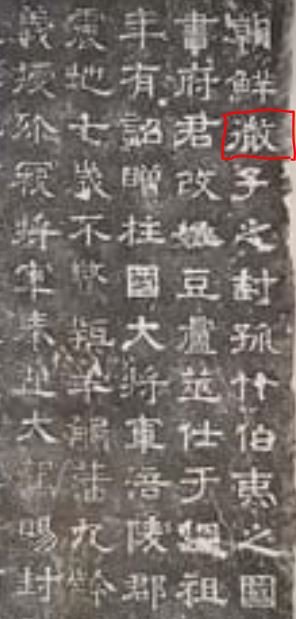 朝鮮微子之封孤竹伯夷之國
書府君改姓豆盧筮仕于魏祖
年有詔贈柱國大將軍涪陵郡
震地七歲不九齡
義將軍大賜封